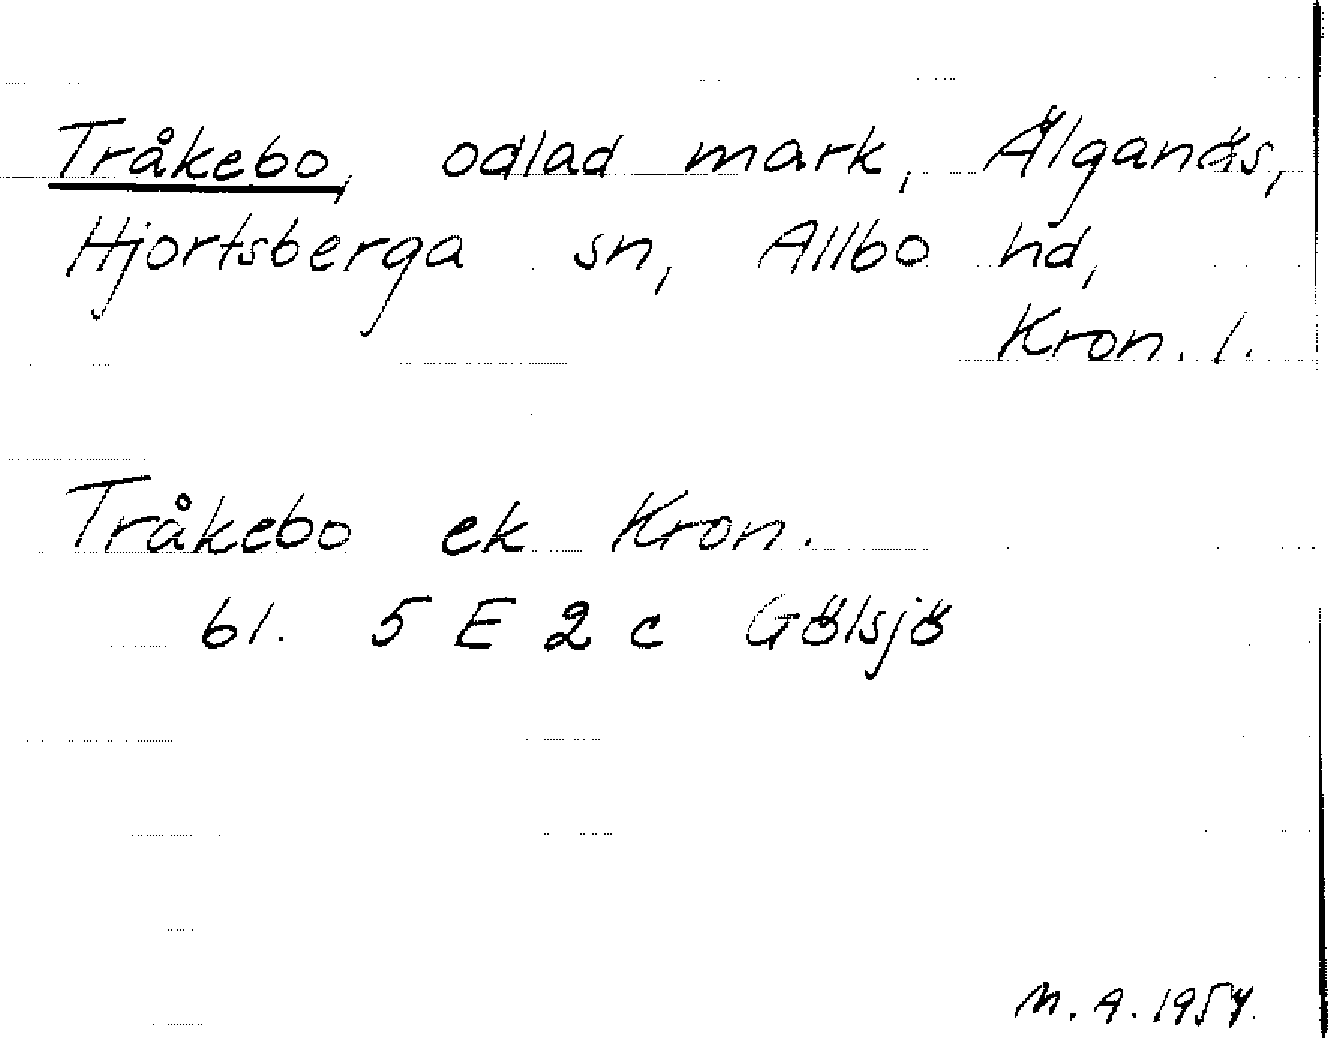 Tråkebo, odlad mark, Älganäs,
Hjortsberga sn, Allbo hd,
Kron. l.
Tråkebo ek Kron.
bl. 5 E 2 c Gölsjö
M. A. 1954.